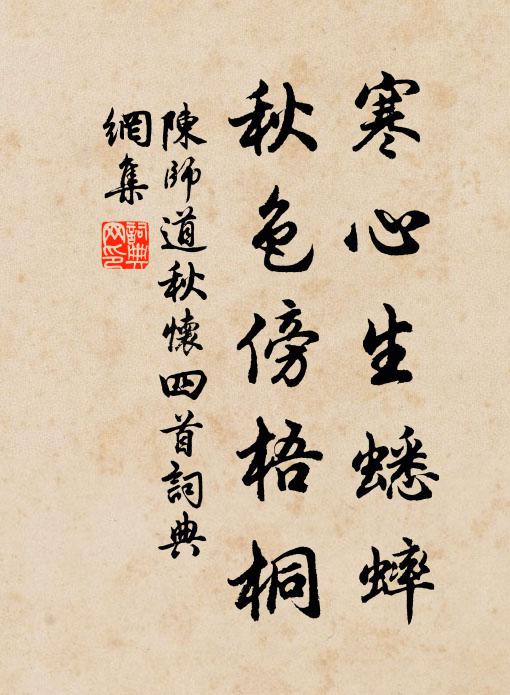 寒心生蟋蟀
秋色傍梧桐
陳師道秋懷四首詞典
網集
詞典
网印